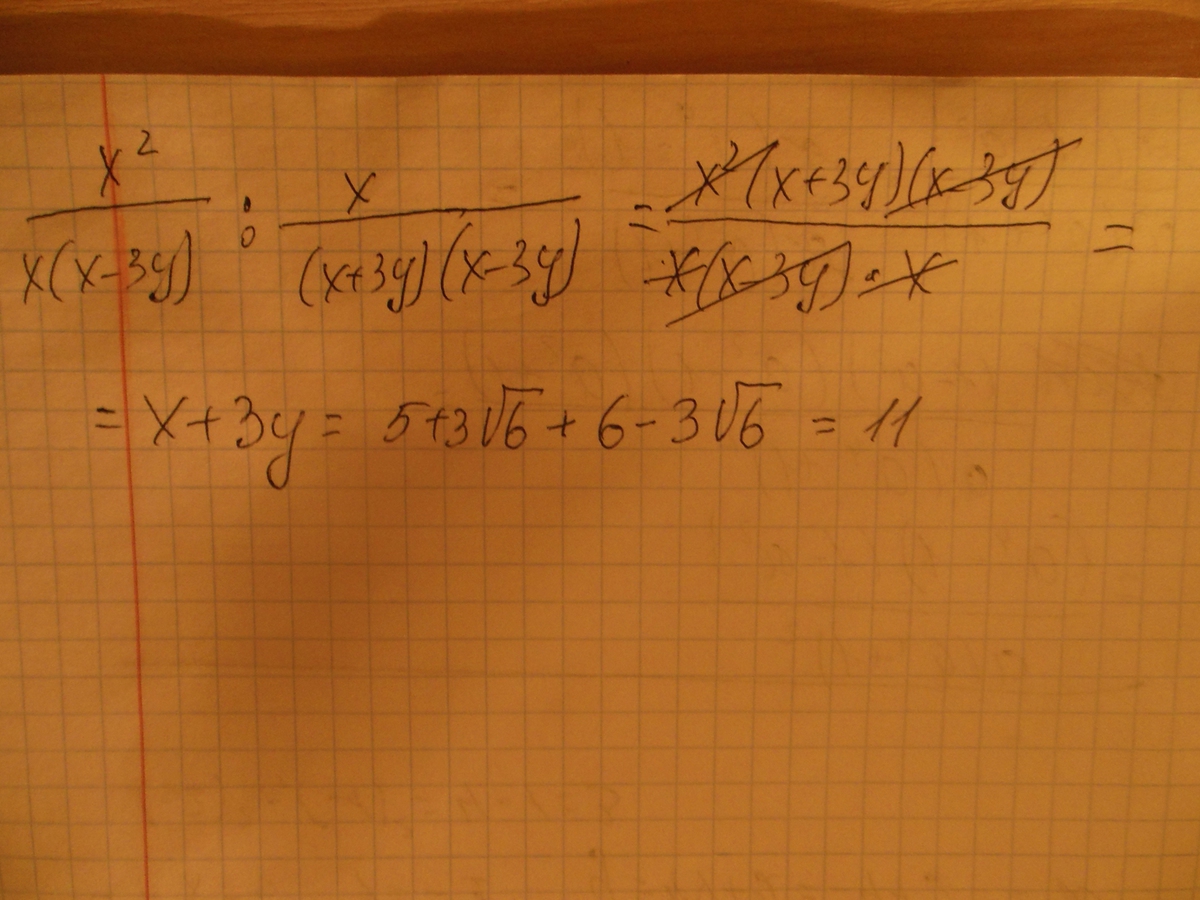 x²/x(x-3y) : x/(x+3y)(x-3y) = x²(x+3y)(x-3y)/x(x-3y)·x =
= x+3y = 5+3√6 + 6-3√6 = 11